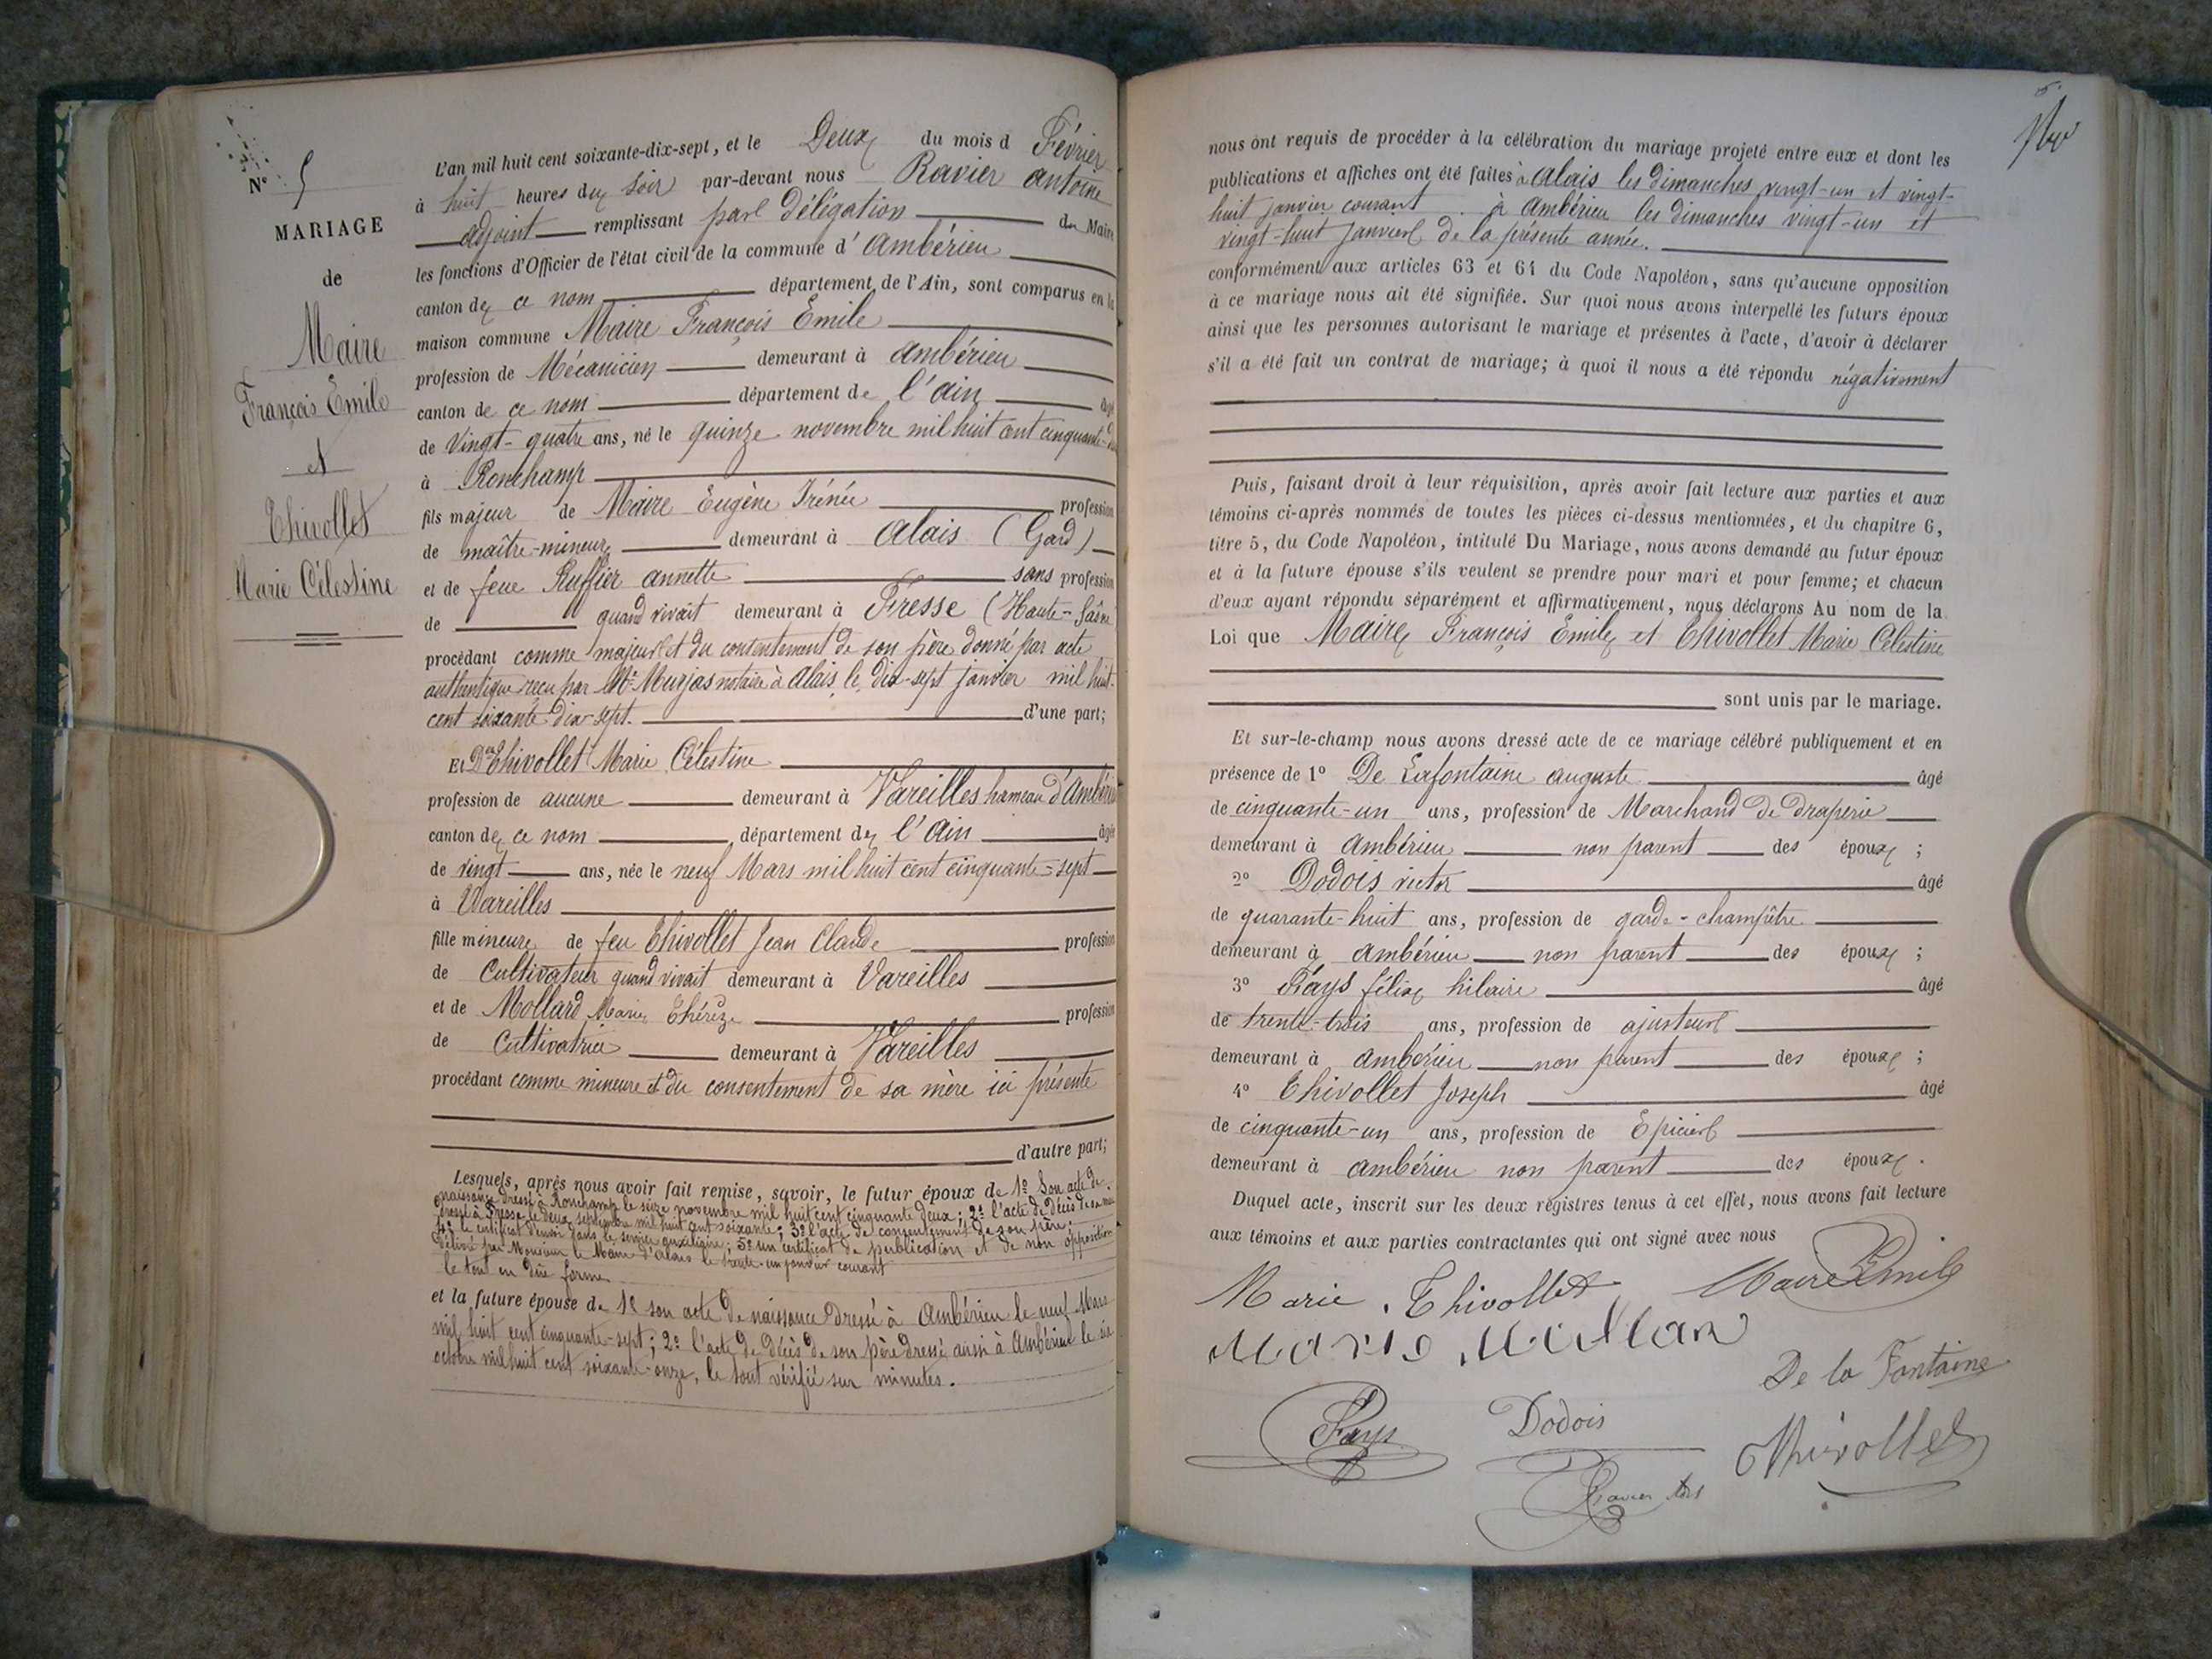 N° 5
MARIAGE
de
Maire
François Emile
et
Thivollet
Marie Célestine
L'an mil huit cent soixante-dix-sept, et le Deux du mois d Février
à huit heures du soir par-devant nous Ravier antoine
adjoint remplissant par délégation du Maire
les fonctions d'Officier de l'état civil de la commune d' Ambérieu
canton de ce nom département de l'Ain, sont comparus en la
maison commune Maire François Emile
profession de Mécanicien demeurant à Ambérieu
canton de ce nom département de l'ain âgé
de vingt-quatre ans, né le quinze novembre mil huit cent cinquante-
à Ronchamp
fils majeur de Maire Eugène Irénée profession
de maître-mineur demeurant à Alais (Gard)
et de feue Ruffier annette sans profession
de quand vivait demeurant à Fresse (Haute-Saône
procédant comme majeur et du consentement de son père donné par acte
authentique reçu par Me Murjas notaire à Alais, le dix-sept janvier mil huit-
cent soixante dix-sept. d'une part;
Et Dlle Thivollet Marie Célestine
profession de aucune demeurant à Vareilles hameau d'Ambérieu
canton de ce nom département de l'Ain âgée
de vingt ans, née le neuf Mars mil huit cent cinquante-sept
à Vareilles
fille mineure de feu Thivollet Jean Claude profession
de Cultivateur quand vivait demeurant à Vareilles
et de Mollard Marie Thérèze profession
de Cultivatrice demeurant à Vareilles
procédant comme mineure et du consentement de sa mère ici présente
d'autre part;
Lesquels, après nous avoir fait remise, savoir, le futur époux de 1° Son acte de
naissance dressé à Ronchamp le seize novembre mil huit cent cinquante deux; 2° l'acte de décès de sa mère
dressé à Fresse le deux septembre mil huit cent soixante; 3° l'acte de consentement de son père;
4° le certificat d'envoi dans le service auxiliaire; 5° un certificat de publication et de non opposition
délivré par Monsieur le Maire d'Alais le trente-un janvier courant
le tout en due forme.
et la future épouse de 1° son acte de naissance dressé à Ambérieu le neuf Mars
mil huit cent cinquante-sept; 2° l'acte de décès de son père dressé aussi à Ambérieu le six
octobre mil huit cent soixante-onze, le tout vérifié sur minutes.
nous ont requis de procéder à la célébration du mariage projeté entre eux et dont les
publications et affiches ont été faites à Alais les dimanches vingt-un et vingt-
huit janvier courant à Ambérieu les dimanches vingt-un et
vingt-huit janvier de la présente année.
conformément aux articles 63 et 64 du Code Napoléon, sans qu'aucune opposition
à ce mariage nous ait été signifiée. Sur quoi nous avons interpellé les futurs époux
ainsi que les personnes autorisant le mariage et présentes à l'acte, d'avoir à déclarer
s'il a été fait un contrat de mariage; à quoi il nous a été répondu négativement
Puis, faisant droit à leur réquisition, après avoir fait lecture aux parties et aux
témoins ci-après nommés de toutes les pièces ci-dessus mentionnées, et du chapitre 6,
titre 5, du Code Napoléon, intitulé Du Mariage, nous avons demandé au futur époux
et à la future épouse s'ils veulent se prendre pour mari et pour femme; et chacun
d'eux ayant répondu séparément et affirmativement, nous déclarons Au nom de la
Loi que Maire François Emile et Thivollet Marie Célestine
sont unis par le mariage.
Et sur-le-champ nous avons dressé acte de ce mariage célébré publiquement et en
présence de 1° De Lafontaine auguste âgé
de cinquante-un ans, profession de Marchand de draperie
demeurant à Ambérieu non parent des époux;
2° Dodois victor âgé
de quarante-huit ans, profession de garde-champêtre
demeurant à Ambérieu non parent des époux;
3° Fays félix hilaire âgé
de trente-trois ans, profession de ajusteur
demeurant à Ambérieu non parent des époux;
4° Thivollet Joseph âgé
de cinquante-un ans, profession de Epicier
demeurant à Ambérieu non parent des époux.
Duquel acte, inscrit sur les deux registres tenus à cet effet, nous avons fait lecture
aux témoins et aux parties contractantes qui ont signé avec nous
Marie Thivollet Maire Emile
Marie
De la Fontaine
Fays Dodois
Thivollet
Ravier